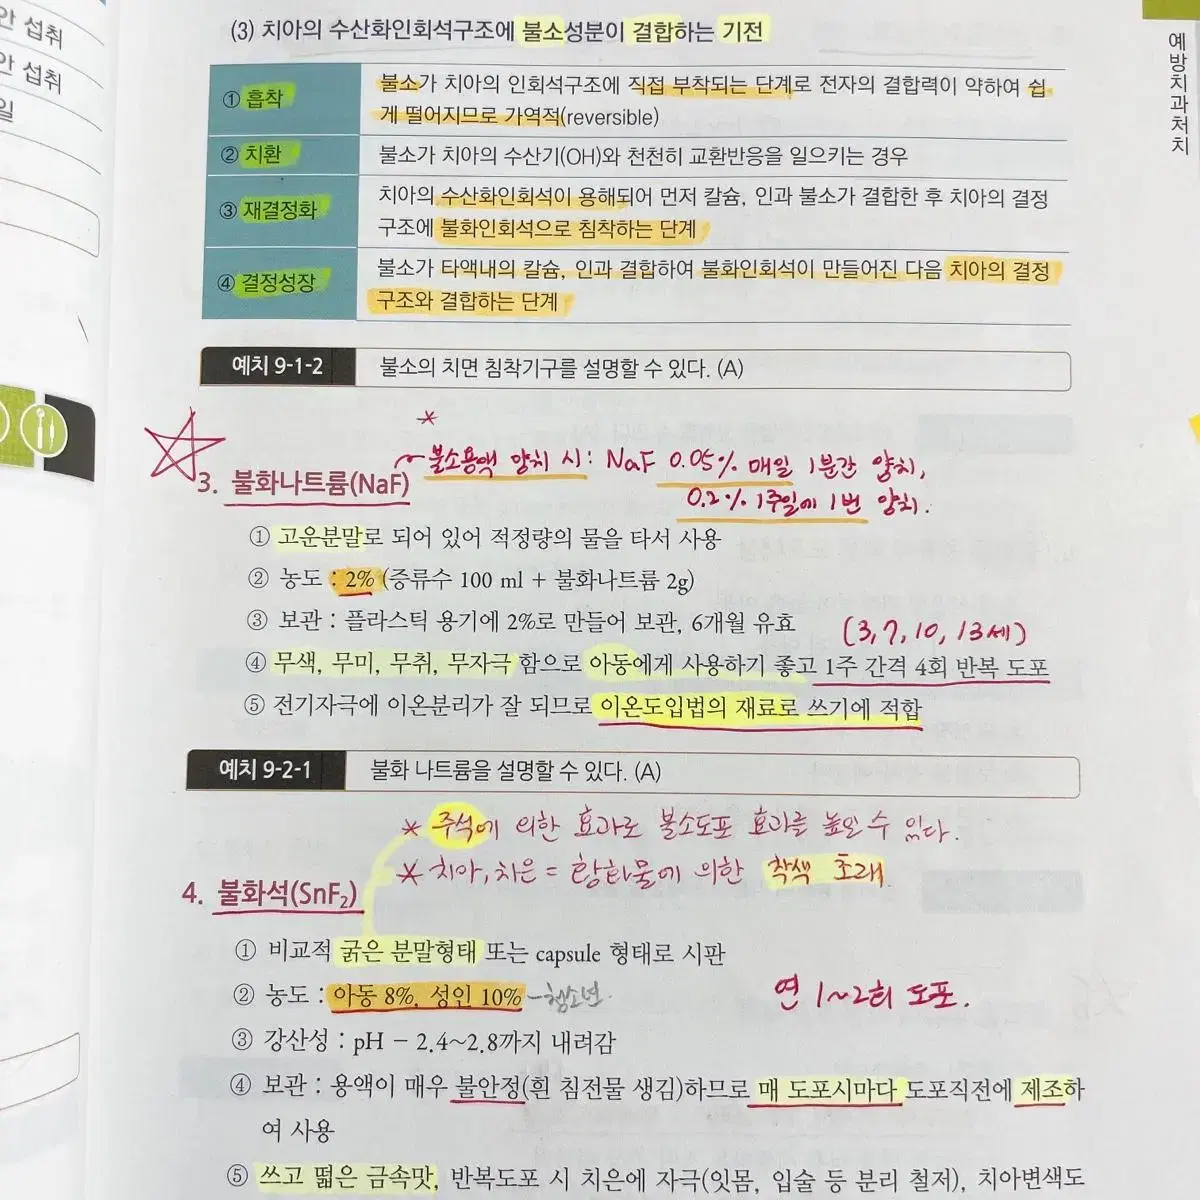 안 섭취
안 섭취
일
예방치과처치
(3) 치아의 수산화인회석구조에 불소성분이 결합하는 기전
① 흡착
불소가 치아의 인회석구조에 직접 부착되는 단계로 전자의 결합력이 약하여 쉽
게 떨어지므로 가역적(reversible)
② 치환
불소가 치아의 수산기(OH)와 천천히 교환반응을 일으키는 경우
③ 재결정화
치아의 수산화인회석이 용해되어 먼저 칼슘, 인과 불소가 결합한 후 치아의 결정
구조에 불화인회석으로 침착하는 단계
④ 결정성장
불소가 타액내의 칼슘, 인과 결합하여 불화인회석이 만들어진 다음 치아의 결정
구조와 결합하는 단계
예치 9-1-2 불소의 치면 침착기구를 설명할 수 있다. (A)
*
불소용액 양치 시: NaF 0.05% 매일 1분간 양치,
0.2% 1주일에 1번 양치.
3. 불화나트륨(NaF)
① 고운분말로 되어 있어 적정량의 물을 타서 사용
② 농도 : 2% (증류수 100 ml + 불화나트륨 2g)
③ 보관 : 플라스틱 용기에 2%로 만들어 보관, 6개월 유효
(3, 7, 10, 13세)
④ 무색, 무미, 무취, 무자극 함으로 아동에게 사용하기 좋고 1주 간격 4회 반복 도포
⑤ 전기자극에 이온분리가 잘 되므로 이온도입법의 재료로 쓰기에 적합
예치 9-2-1 불화 나트륨을 설명할 수 있다. (A)
* 주석에 의한 효과로 불소도포 효과를 높일 수 있다.
* 치아, 치은 = 황화물에 의한 착색 초래
4. 불화석(SnF₂)
① 비교적 굵은 분말형태 또는 capsule 형태로 시판
② 농도 : 아동 8%, 성인 10% -청소년.
연 1~2회 도포.
③ 강산성 : pH - 2.4~2.8까지 내려감
④ 보관 : 용액이 매우 불안정(흰 침전물 생김)하므로 매 도포시마다 도포직전에 제조하
여 사용
⑤ 쓰고 떫은 금속맛, 반복도포 시 치은에 자극(잇몸, 입술 등 분리 철저), 치아변색도